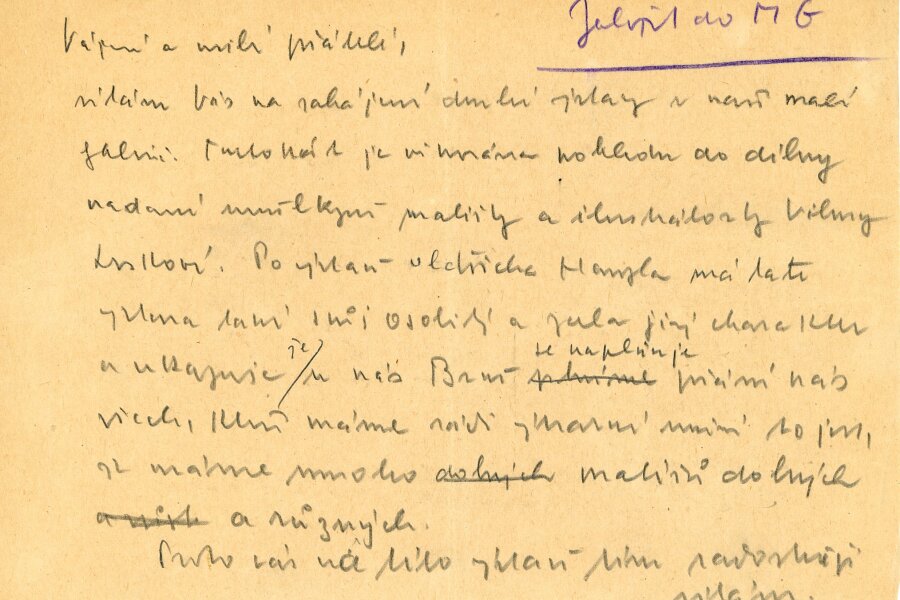 do M G
Vážení a milí přátelé,
vítám Vás na zahájení druhé výstavy v naší malé
galerii. Tentokrát je věnována pohledu do dílny
nadané umělkyně malířky a ilustrátorky Vilmy
Po výstavě Oldřicha má tato
výstava také svůj osobitý a zcela jiný charakter
a ukazuje, že u nás v Brně se naplňuje přání nás
všech, kteří máme rádi výtvarné umění to jest,
že máme mnoho dobrých malířů dobrých
a různých.
Proto vás na této výstavě tím radostněji
vítám.